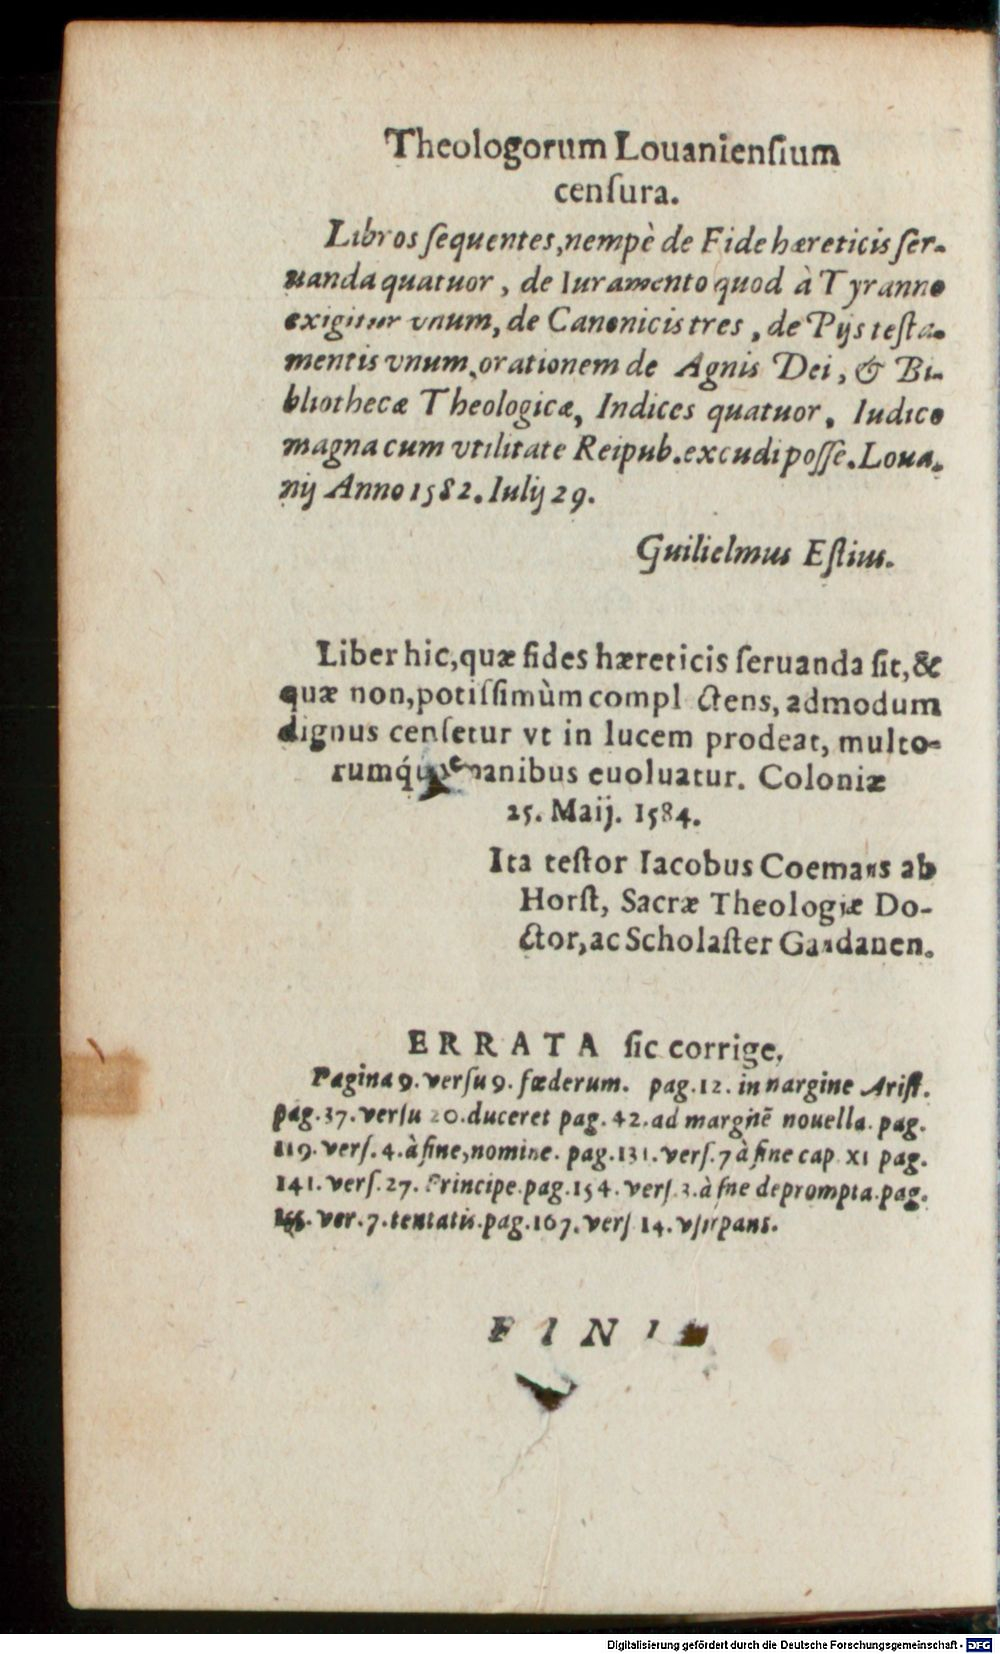 Theologorum Louanienſium
cenſura.
Libros ſequentes, nempè de Fide hæreticis ſer-
uanda quatuor, de Iuramento quod à Tyranno
exigitur vnum, de Canonicis tres, de Pijs teſta-
mentis vnum, orationem de Agnis Dei, & Bi-
bliothecæ Theologicæ, Indices quatuor, Iudico
magna cum vtilitate Reipub. excudi poſſe. Loua-
nij Anno 1582. Iulij 29.
Guilielmus Eſtius.
Liber hic, quæ fides hæreticis ſeruanda ſit, &
quæ non, potiſſimùm compl ctens, admodum
dignus cenſetur vt in lucem prodeat, multo-
rumq́ue manibus euoluatur. Coloniæ
25. Maij. 1584.
Ita teſtor Iacobus Coemans ab
Horſt, Sacræ Theologiæ Do-
ctor, ac Scholaſter Gandanen.
ERRATA ſic corrige.
Pagina 9. verſu 9. fœderum. pag. 12. in nargine Ariſt.
pag. 37. verſu 20. duceret pag. 42. ad marginē nouella. pag.
119. verſ. 4. à fine, nomine. pag. 131. verſ. 7 à fine cap. XI pag.
141. verſ. 27. Principe. pag. 154. verſ. 3. à fine deprompta. pag.
ver. 7. tentatis. pag. 167. verſ 14. vſurpans.
FINI
Digitalisierung gefördert durch die Deutsche Forschungsgemeinschaft - DFG